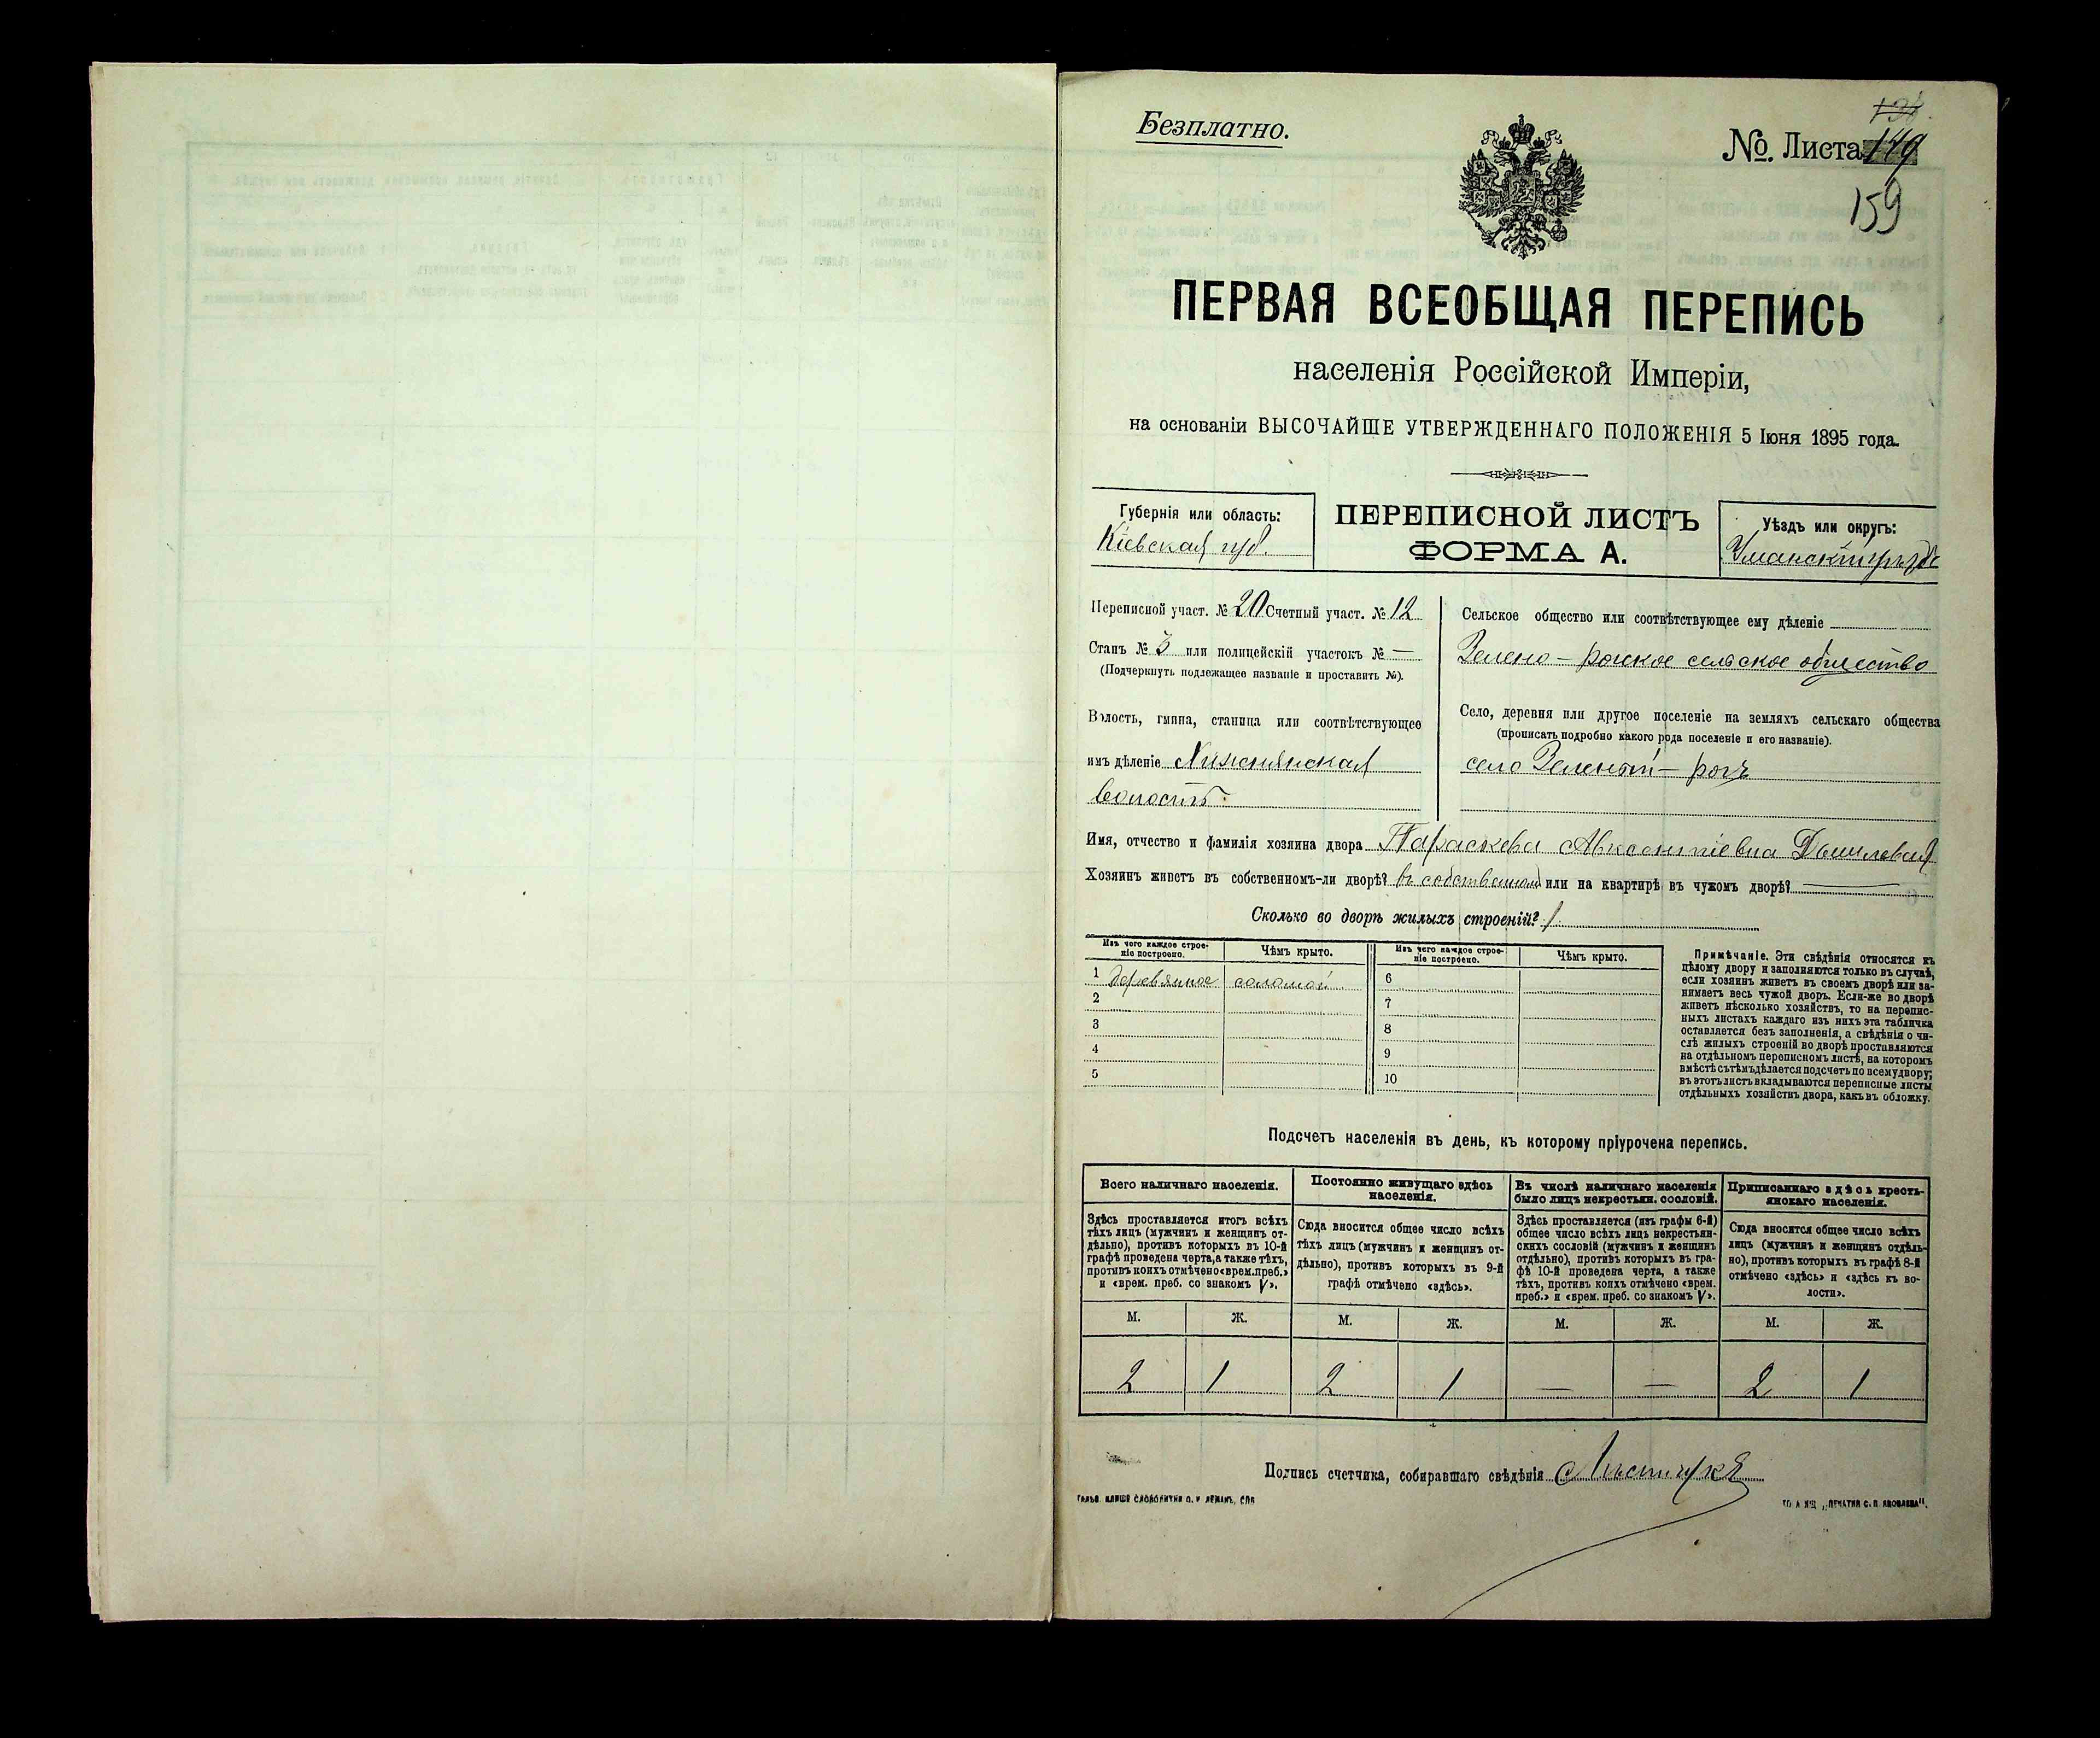 Безплатно.
№. Листа 149
159
ПЕРВАЯ ВСЕОБЩАЯ ПЕРЕПИСЬ
населенія Россійской Имперіи,
на основаніи ВЫСОЧАЙШЕ УТВЕРЖДЕННАГО ПОЛОЖЕНІЯ 5 Іюня 1895 года.
Губернія или область:
Кіевская губ.
ПЕРЕПИСНОЙ ЛИСТЪ
ФОРМА А.
Уѣздъ или округъ:
Уманскій уѣздъ
Переписной участ. № 20 Счетный участ. № 12
Станъ № 3 или полицейскій участокъ № —
(Подчеркнуть подлежащее названіе и проставить №).
Волость, гмина, станица или соотвѣтствующее
имъ дѣленіе
волость.
Сельское общество или соотвѣтствующее ему дѣленіе
Зелено-рогское сельское общество
Село, деревня или другое поселеніе на земляхъ сельскаго общества
(прописать подробно какого рода поселеніе и его названіе).
село Зеленый-рогъ
Имя, отчество и фамилія хозяина двора Параскева Авксентіевна
Хозяинъ живетъ въ собственномъ-ли дворѣ? въ собственномъ или на квартирѣ въ чужомъ дворѣ? —
Сколько во дворѣ жилыхъ строеній? 1
Изъ чего каждое строе-
ніе построено.
Чѣмъ крыто.
1 деревянное соломой
2
3
4
5
Изъ чего каждое строе-
ніе построено.
Чѣмъ крыто.
6
7
8
9
10
Примѣчаніе. Эти свѣдѣнія относятся къ
цѣлому двору и заполняются только въ случаѣ,
если хозяинъ живетъ въ своемъ дворѣ или за-
нимаетъ весь чужой дворъ. Если-же во дворѣ
живетъ нѣсколько хозяйствъ, то на перепис-
ныхъ листахъ каждаго изъ нихъ эта табличка
оставляется безъ заполненія, а свѣдѣнія о чи-
слѣ жилыхъ строеній во дворѣ проставляются
на отдѣльномъ переписномъ листѣ, на которомъ
вмѣстѣ съ тѣмъ дѣлается подсчетъ по всему двору;
въ этотъ листъ вкладываются переписные листы
отдѣльныхъ хозяйствъ двора, какъ въ обложку.
Подсчетъ населенія въ день, къ которому пріурочена перепись.
Всего наличнаго населенія.
Здѣсь проставляется итогъ всѣхъ
тѣхъ лицъ (мужчинъ и женщинъ от-
дѣльно), противъ которыхъ въ 10-й
графѣ проведена черта, а также тѣхъ,
противъ коихъ отмѣчено «врем. преб.»
и «врем. преб. со знакомъ V».
Постоянно живущаго здѣсь
населенія.
Сюда вносится общее число всѣхъ
тѣхъ лицъ (мужчинъ и женщинъ от-
дѣльно), противъ которыхъ въ 9-й
графѣ отмѣчено «здѣсь».
Въ числѣ наличнаго населенія
было лицъ некрестьян. сословій.
Здѣсь проставляется (изъ графы 6-й)
общее число всѣхъ лицъ некрестьян-
скихъ сословій (мужчинъ и женщинъ
отдѣльно), противъ которыхъ въ гра-
фѣ 10-й проведена черта, а также
тѣхъ, противъ коихъ отмѣчено «врем.
преб.» и «врем. преб. со знакомъ V».
Приписаннаго здѣсь кресть-
янскаго населенія.
Сюда вносится общее число всѣхъ
лицъ (мужчинъ и женщинъ отдѣль-
но), противъ которыхъ въ графѣ 8-й
отмѣчено «здѣсь» и «здѣсь къ во-
лости».
М. Ж. М. Ж. М. Ж. М. Ж.
2 1 2 1 — — 2 1
Подпись счетчика, собиравшаго свѣдѣнія